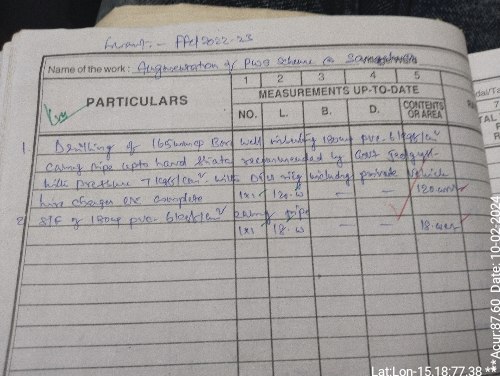 Grant :- FFC/2022-23
Name of the work : Augmentation of PWS Scheme @
1 2 3 4 5
PARTICULARS MEASUREMENTS UP-TO-DATE
NO. L. B. D. CONTENTS OR AREA
1. Drilling of 165mm Bore well including 180mm pvc. 6kgf/cm²
casing pipe upto hard Strata recommended by Govt
with pressure 7 kgf/cm². with DTH rig including private vehicle
hire charges etc complete 1x1 120.00 — — 120.00
2 S/F of 180mm pvc. 6kgf/cm² casing pipe
1x1 18.00 — — 18.00
Lat:Lon-15.18:77.38 ** Acur:87.60 Date: 10-02-2024 **